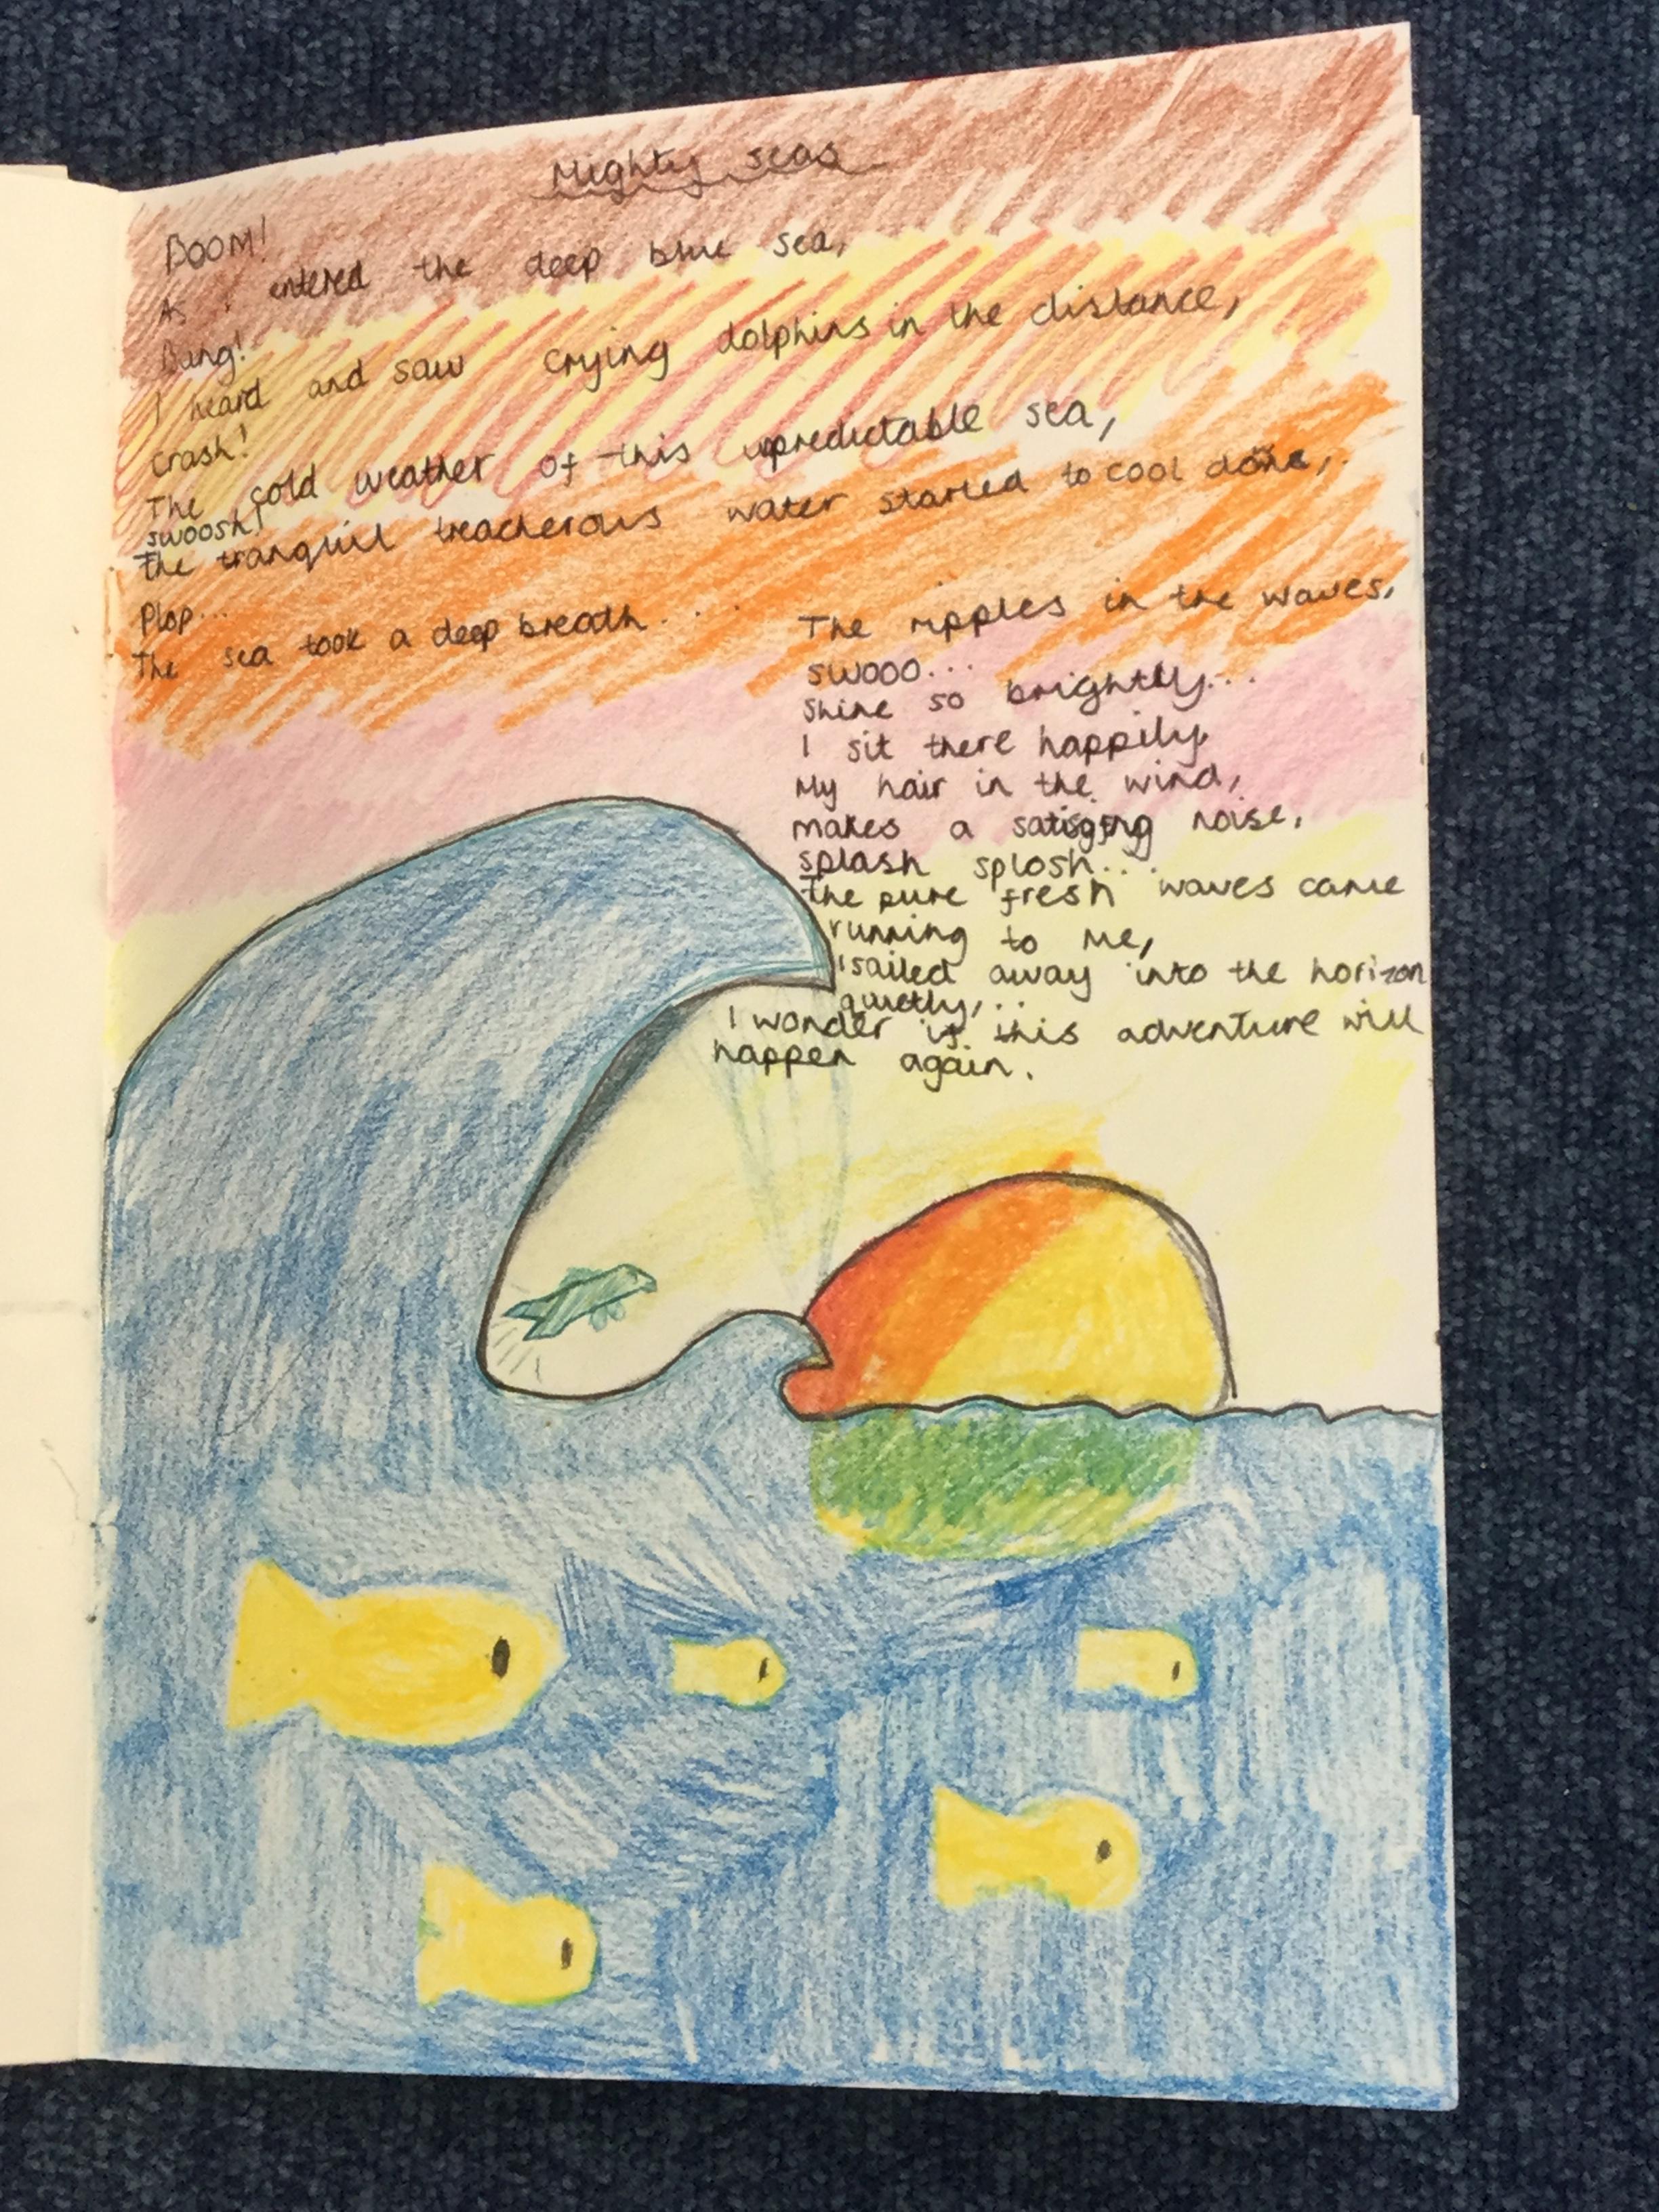 Mighty seas
BOOM!
As I entered the deep blue sea,
Bang!
I heard and saw crying dolphins in the distance,
Crash!
The cold weather of this upredictable sea,
swoosh!
The tranquil treacherous water started to cool done,
Plop...
The sea took a deep breath...
The ripples in the waves,
swooo...
Shine so brightly...
I sit there happily,
My hair in the wind,
makes a noise,
splash splosh...
The pure fresh waves came
running to me,
I sailed away into the horizon
quietly,...
I wonder if this adventure will
happen again.